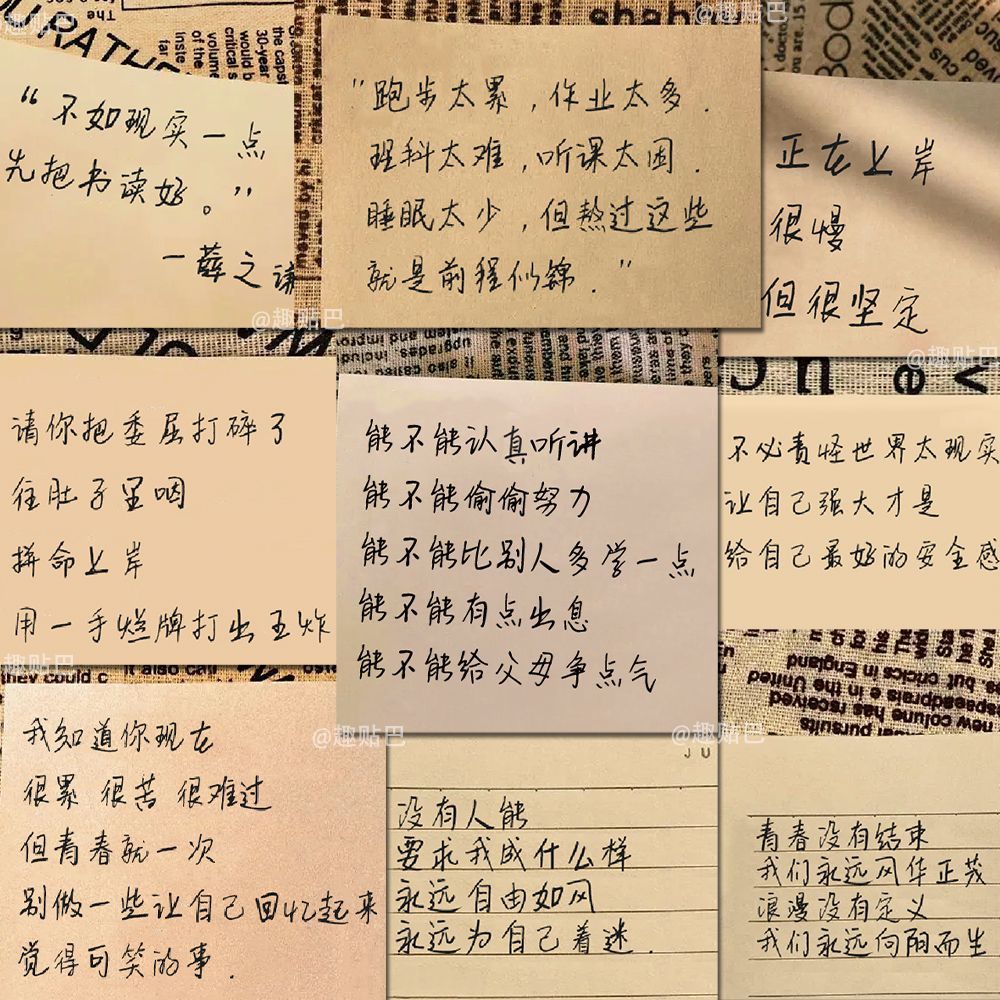 “不如现实一点
先把书读好。”
一薛之谦
"跑步太累，作业太多．
理科太难，听课太困．
睡眠太少，但熬过这些
就是前程似锦．"
正在上岸
很慢
但很坚定
请你把委屈打碎了
往肚子里咽
拼命上岸
用一手烂牌打出王炸
能不能认真听讲
能不能偷偷努力
能不能比别人多学一点
能不能有点出息
能不能给父母争点气
不必责怪世界太现实
让自己强大才是
给自己最好的安全感
我知道你现在
很累 很苦 很难过
但青春就一次
别做一些让自己回忆起来
觉得可笑的事．
JU
没有人能
要求我成什么样
永远自由如风
永远为自己着迷．
青春没有结束
我们永远风华正茂
浪漫没有定义
我们永远向阳而生
new colune has received
spaesdpraise in the United
but cricics in England
it also call
they could c
@趣贴巴
@趣贴巴
@趣贴巴
@趣贴巴
@趣贴巴